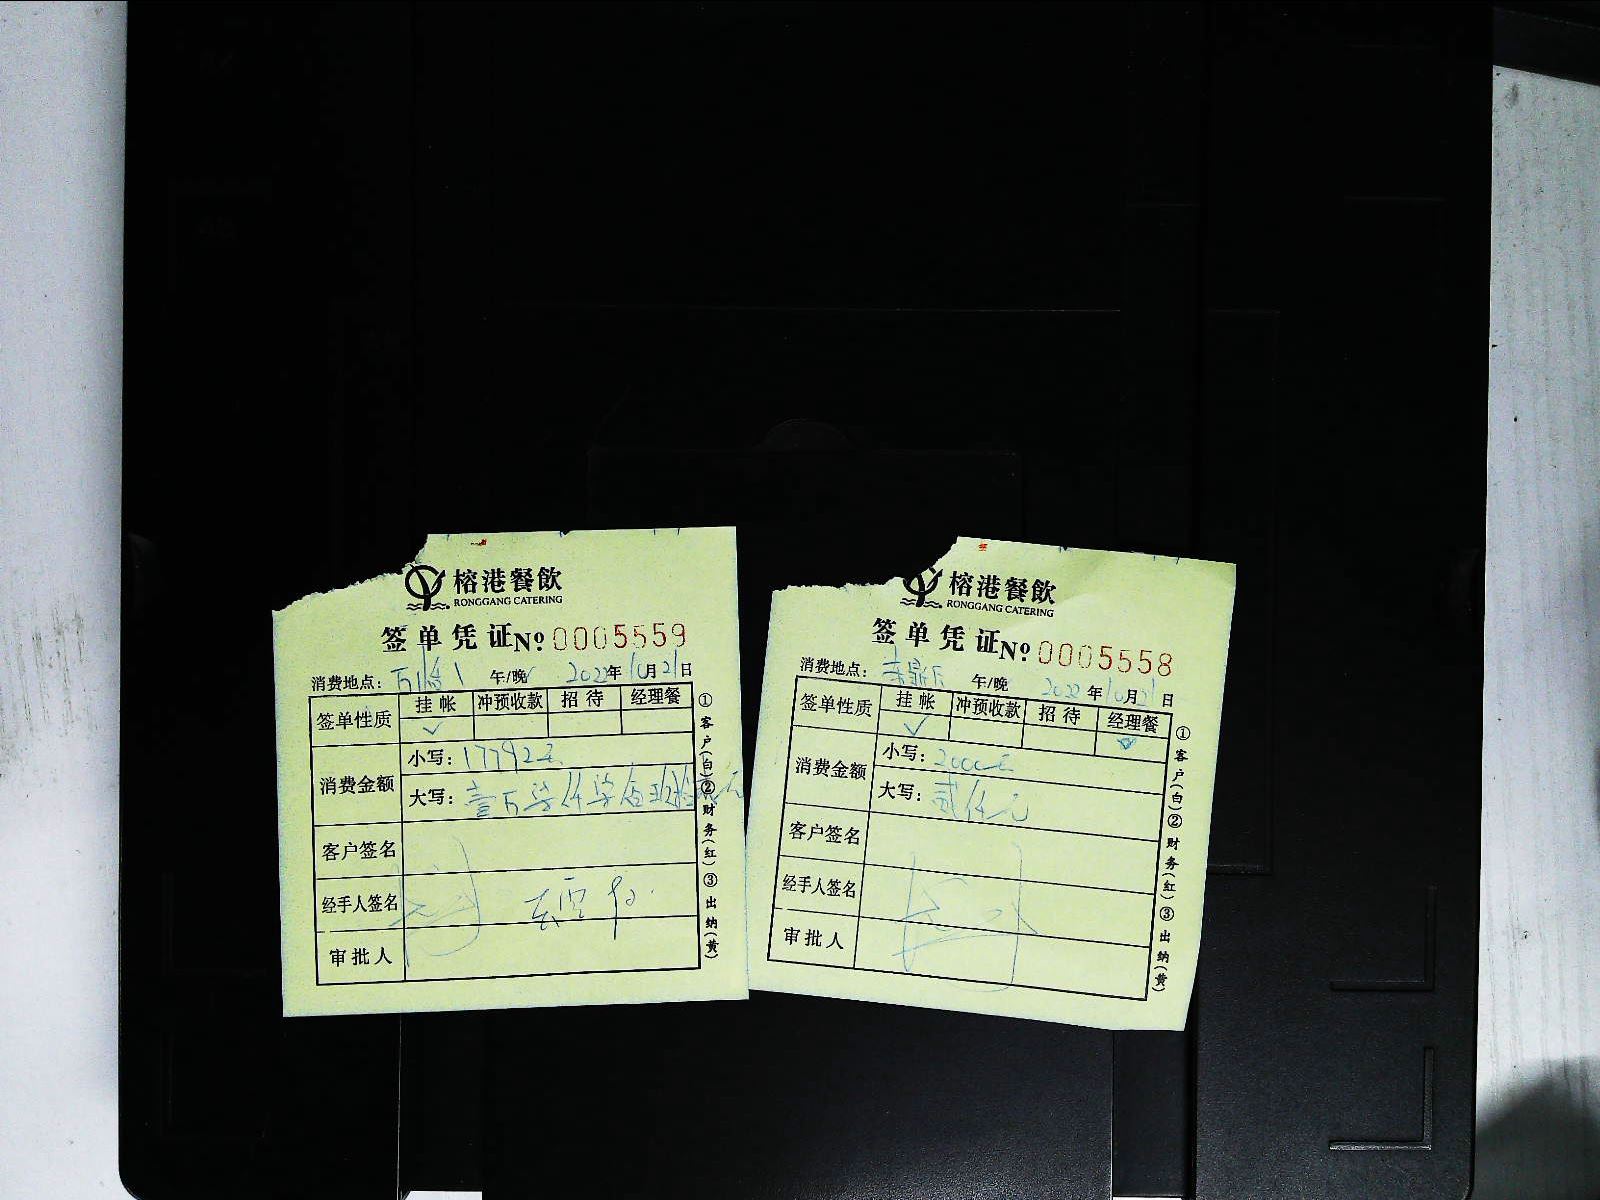 榕港餐飲
RONGGANG CATERING
签单凭证 No 0005559
消费地点: 午/晚 2022年10月21日
签单性质 挂帐 冲预收款 招待 经理餐
✓
消费金额 小写: 17792元
大写: 壹万柒仟柒佰玖拾贰元
客户签名
经手人签名
审批人
①客户(白)②财务(红)③出纳(黄)
榕港餐飲
RONGGANG CATERING
签单凭证 No 0005558
消费地点: 午/晚 2022年10月21日
签单性质 挂帐 冲预收款 招待 经理餐
✓
消费金额 小写: 2000元
大写: 贰仟元
客户签名
经手人签名
审批人
①客户(白)②财务(红)③出纳(黄)